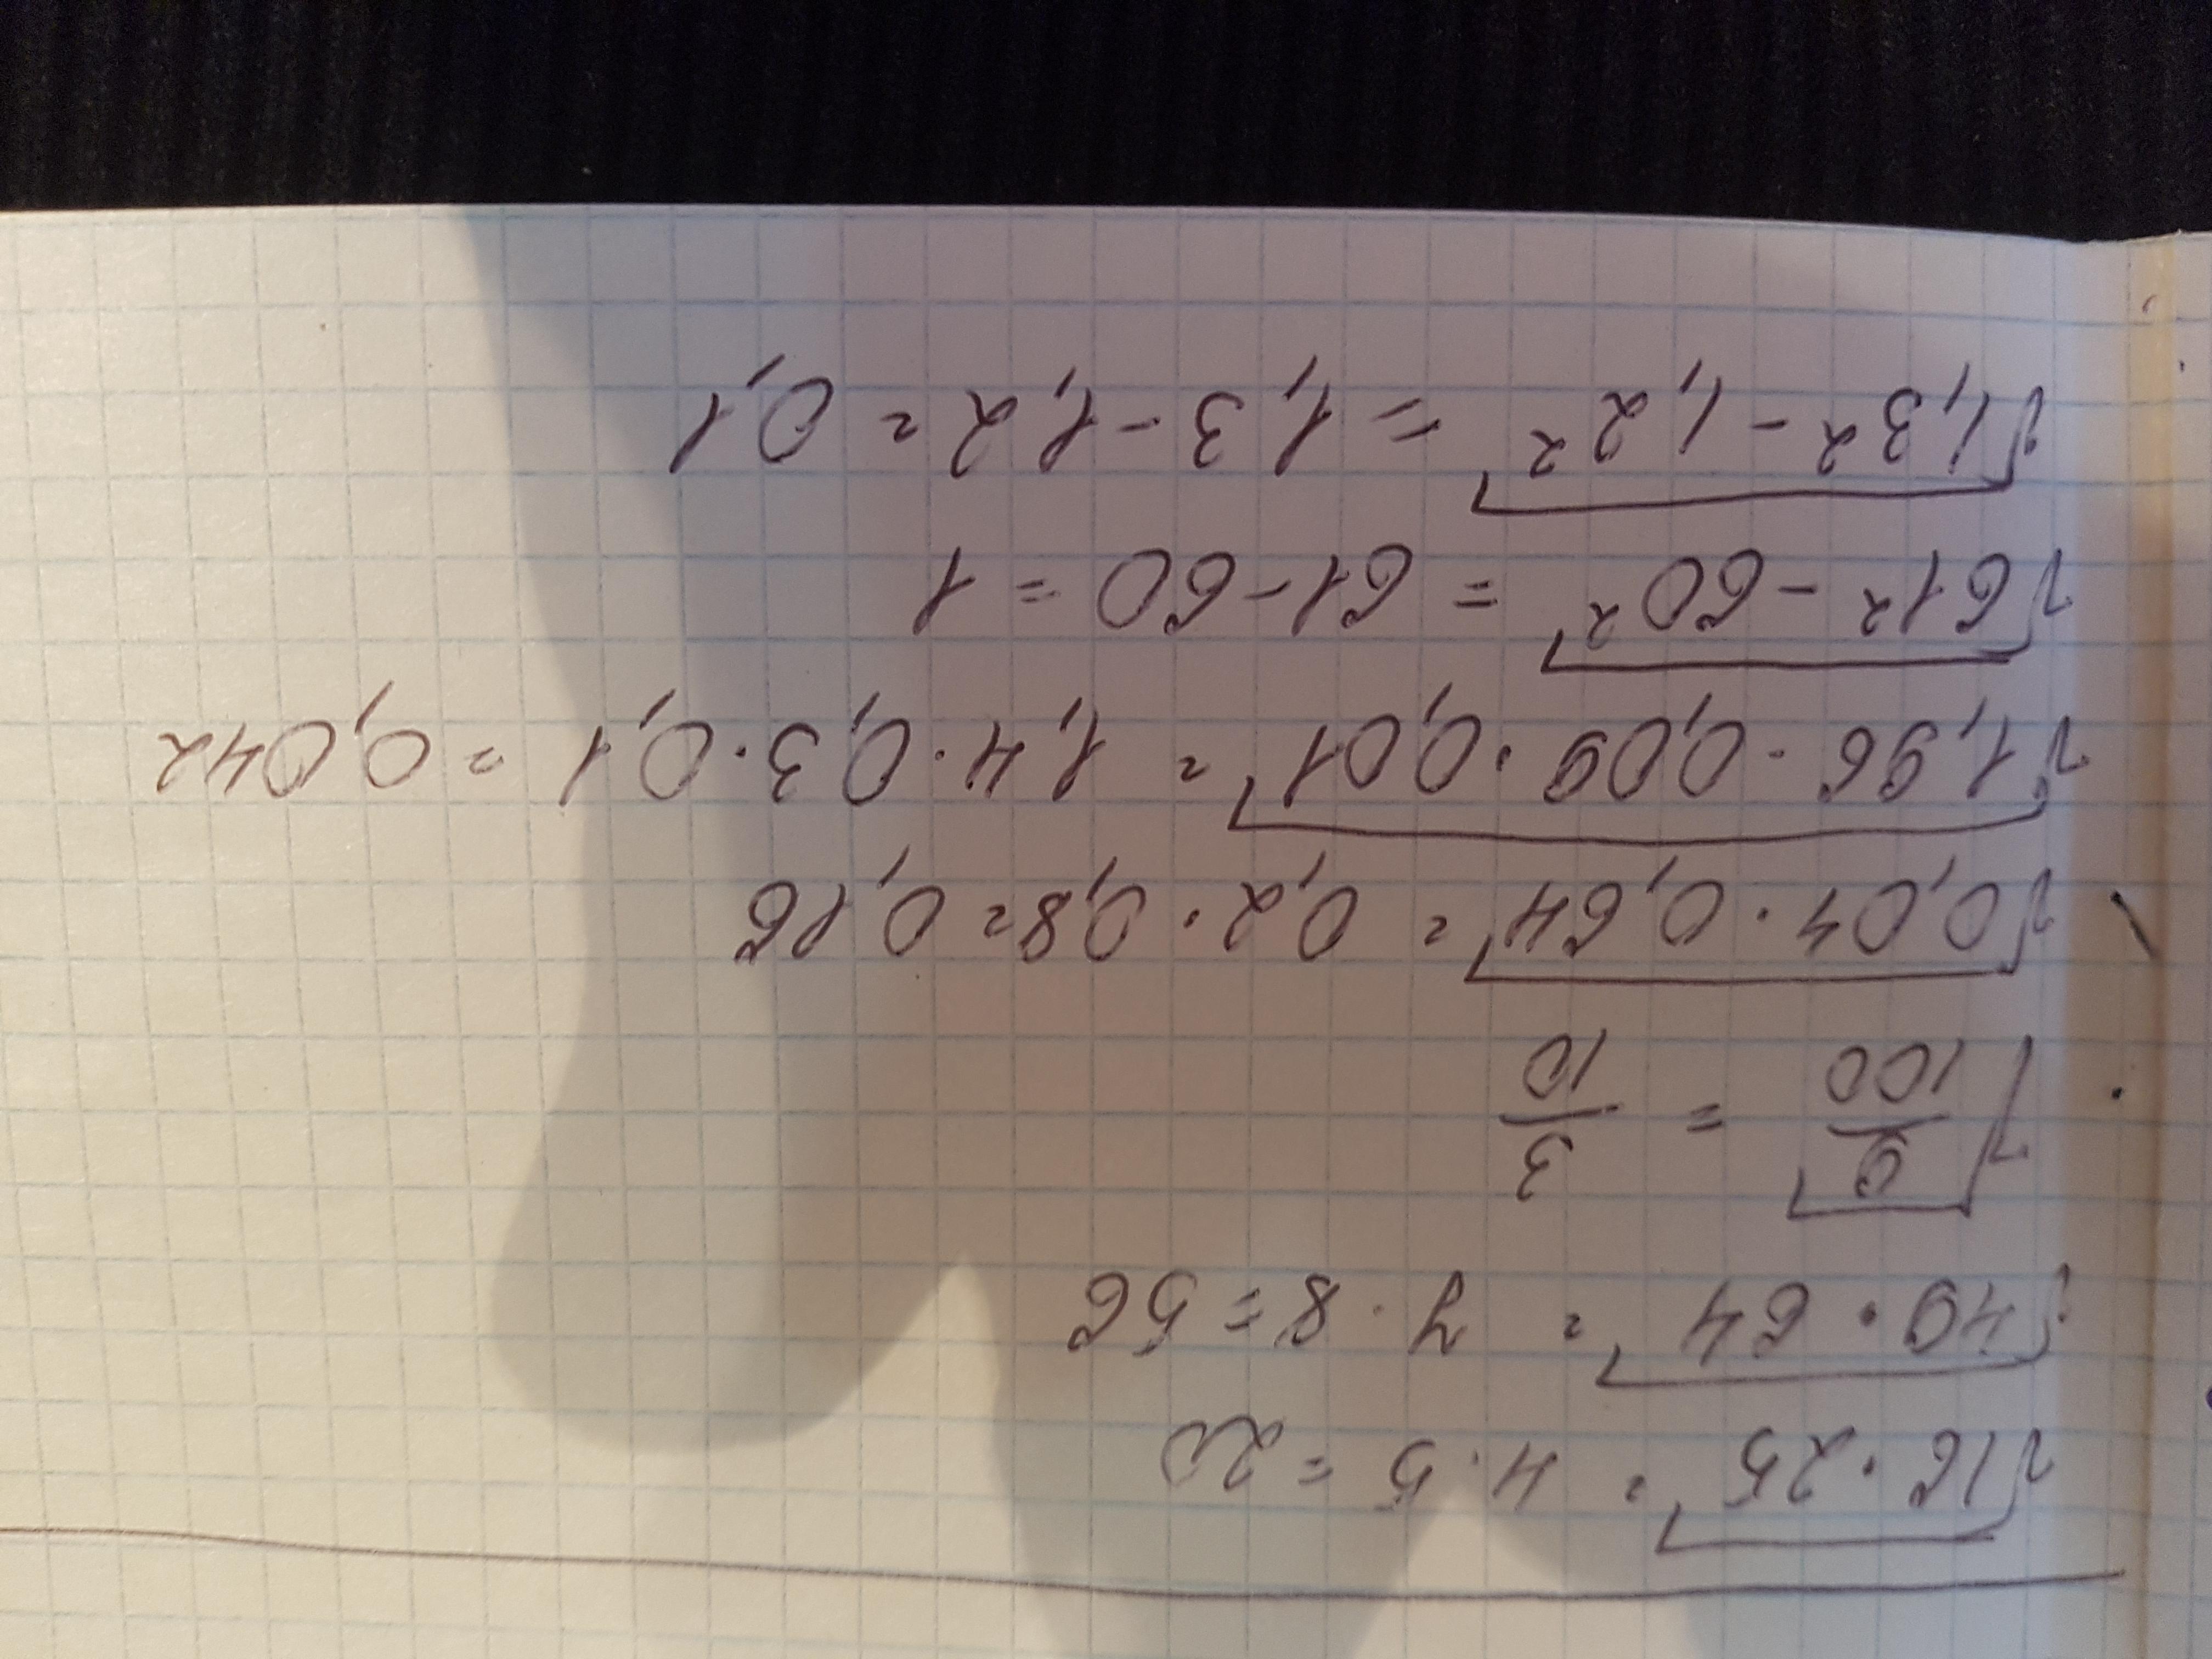 √16·25 = 4·5 = 20
√49·64 = 7·8 = 56
√9/100 = 3/10
√0,04·0,64 = 0,2·0,8 = 0,16
√1,96·0,09·0,01 = 1,4·0,3·0,1 = 0,042
√61² - 60² = 61 - 60 = 1
√1,3² - 1,2² = 1,3 - 1,2 = 0,1